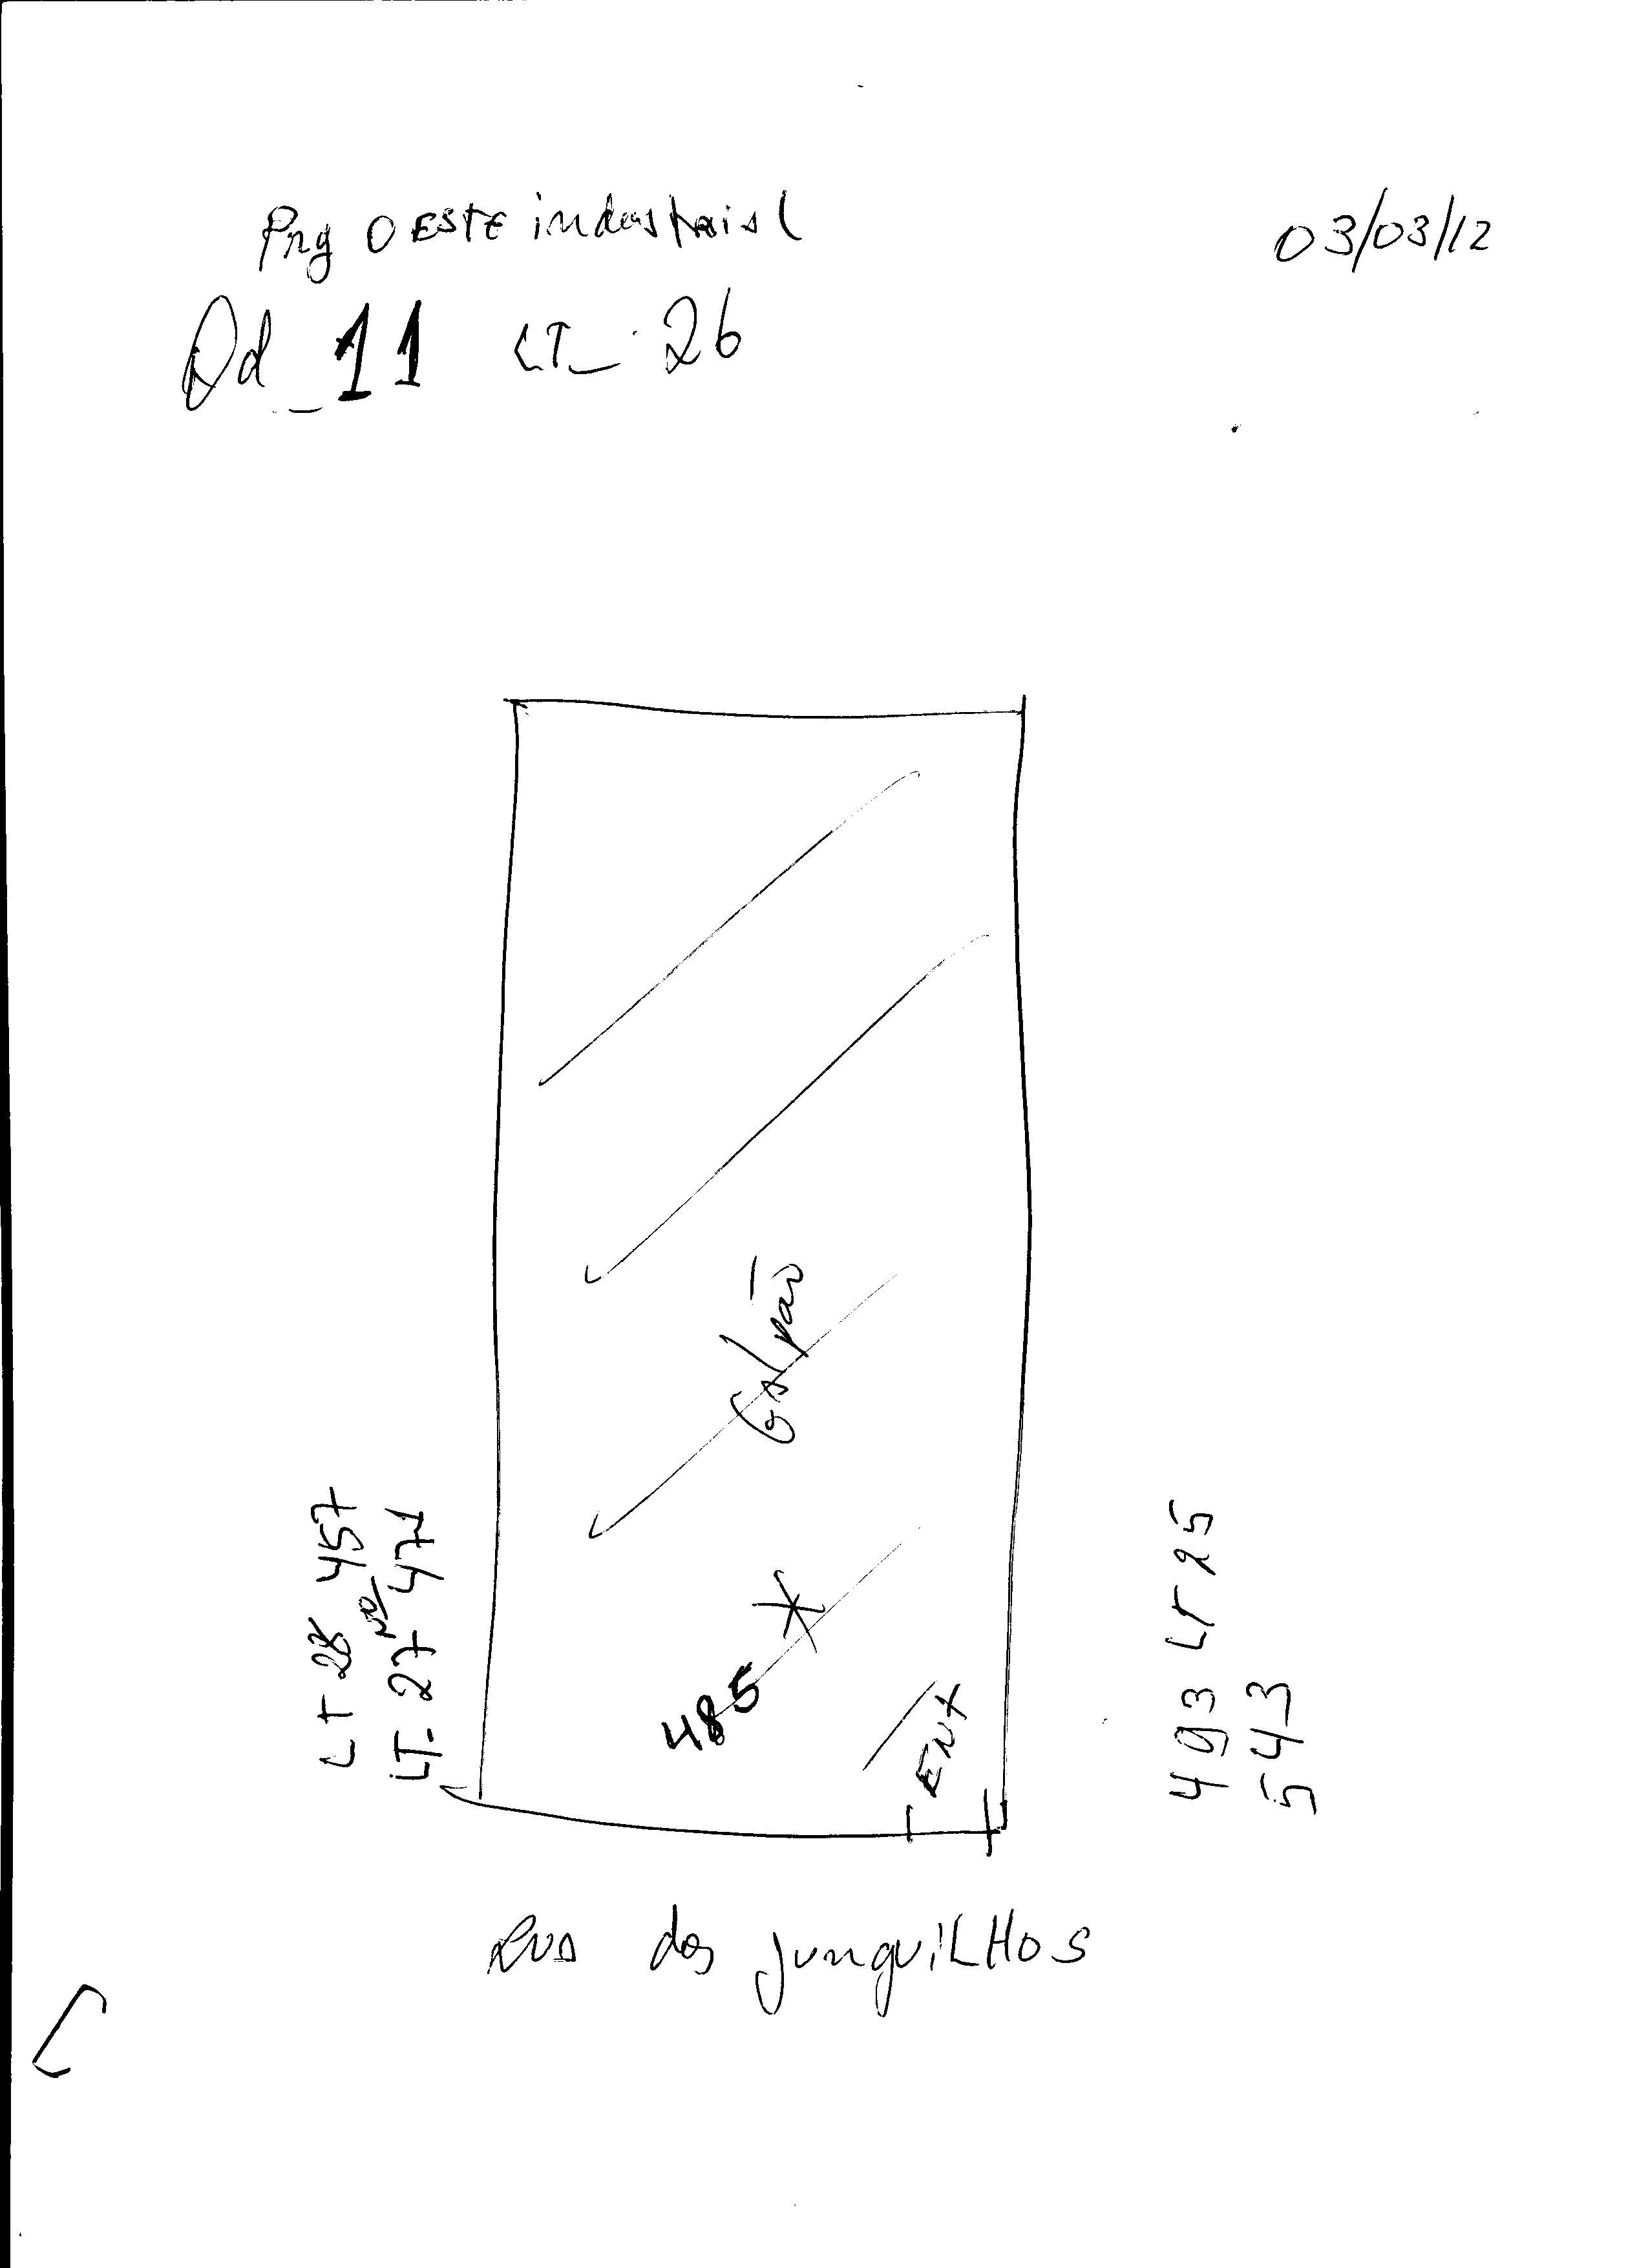 Prq OESTE industrial
03/03/12
Qd_11 LT_ 26
Galpão
485
ENT
LT 28 457
LT. 27 Nº 471
493 LT 25
543
RUA dos junquiLHOS